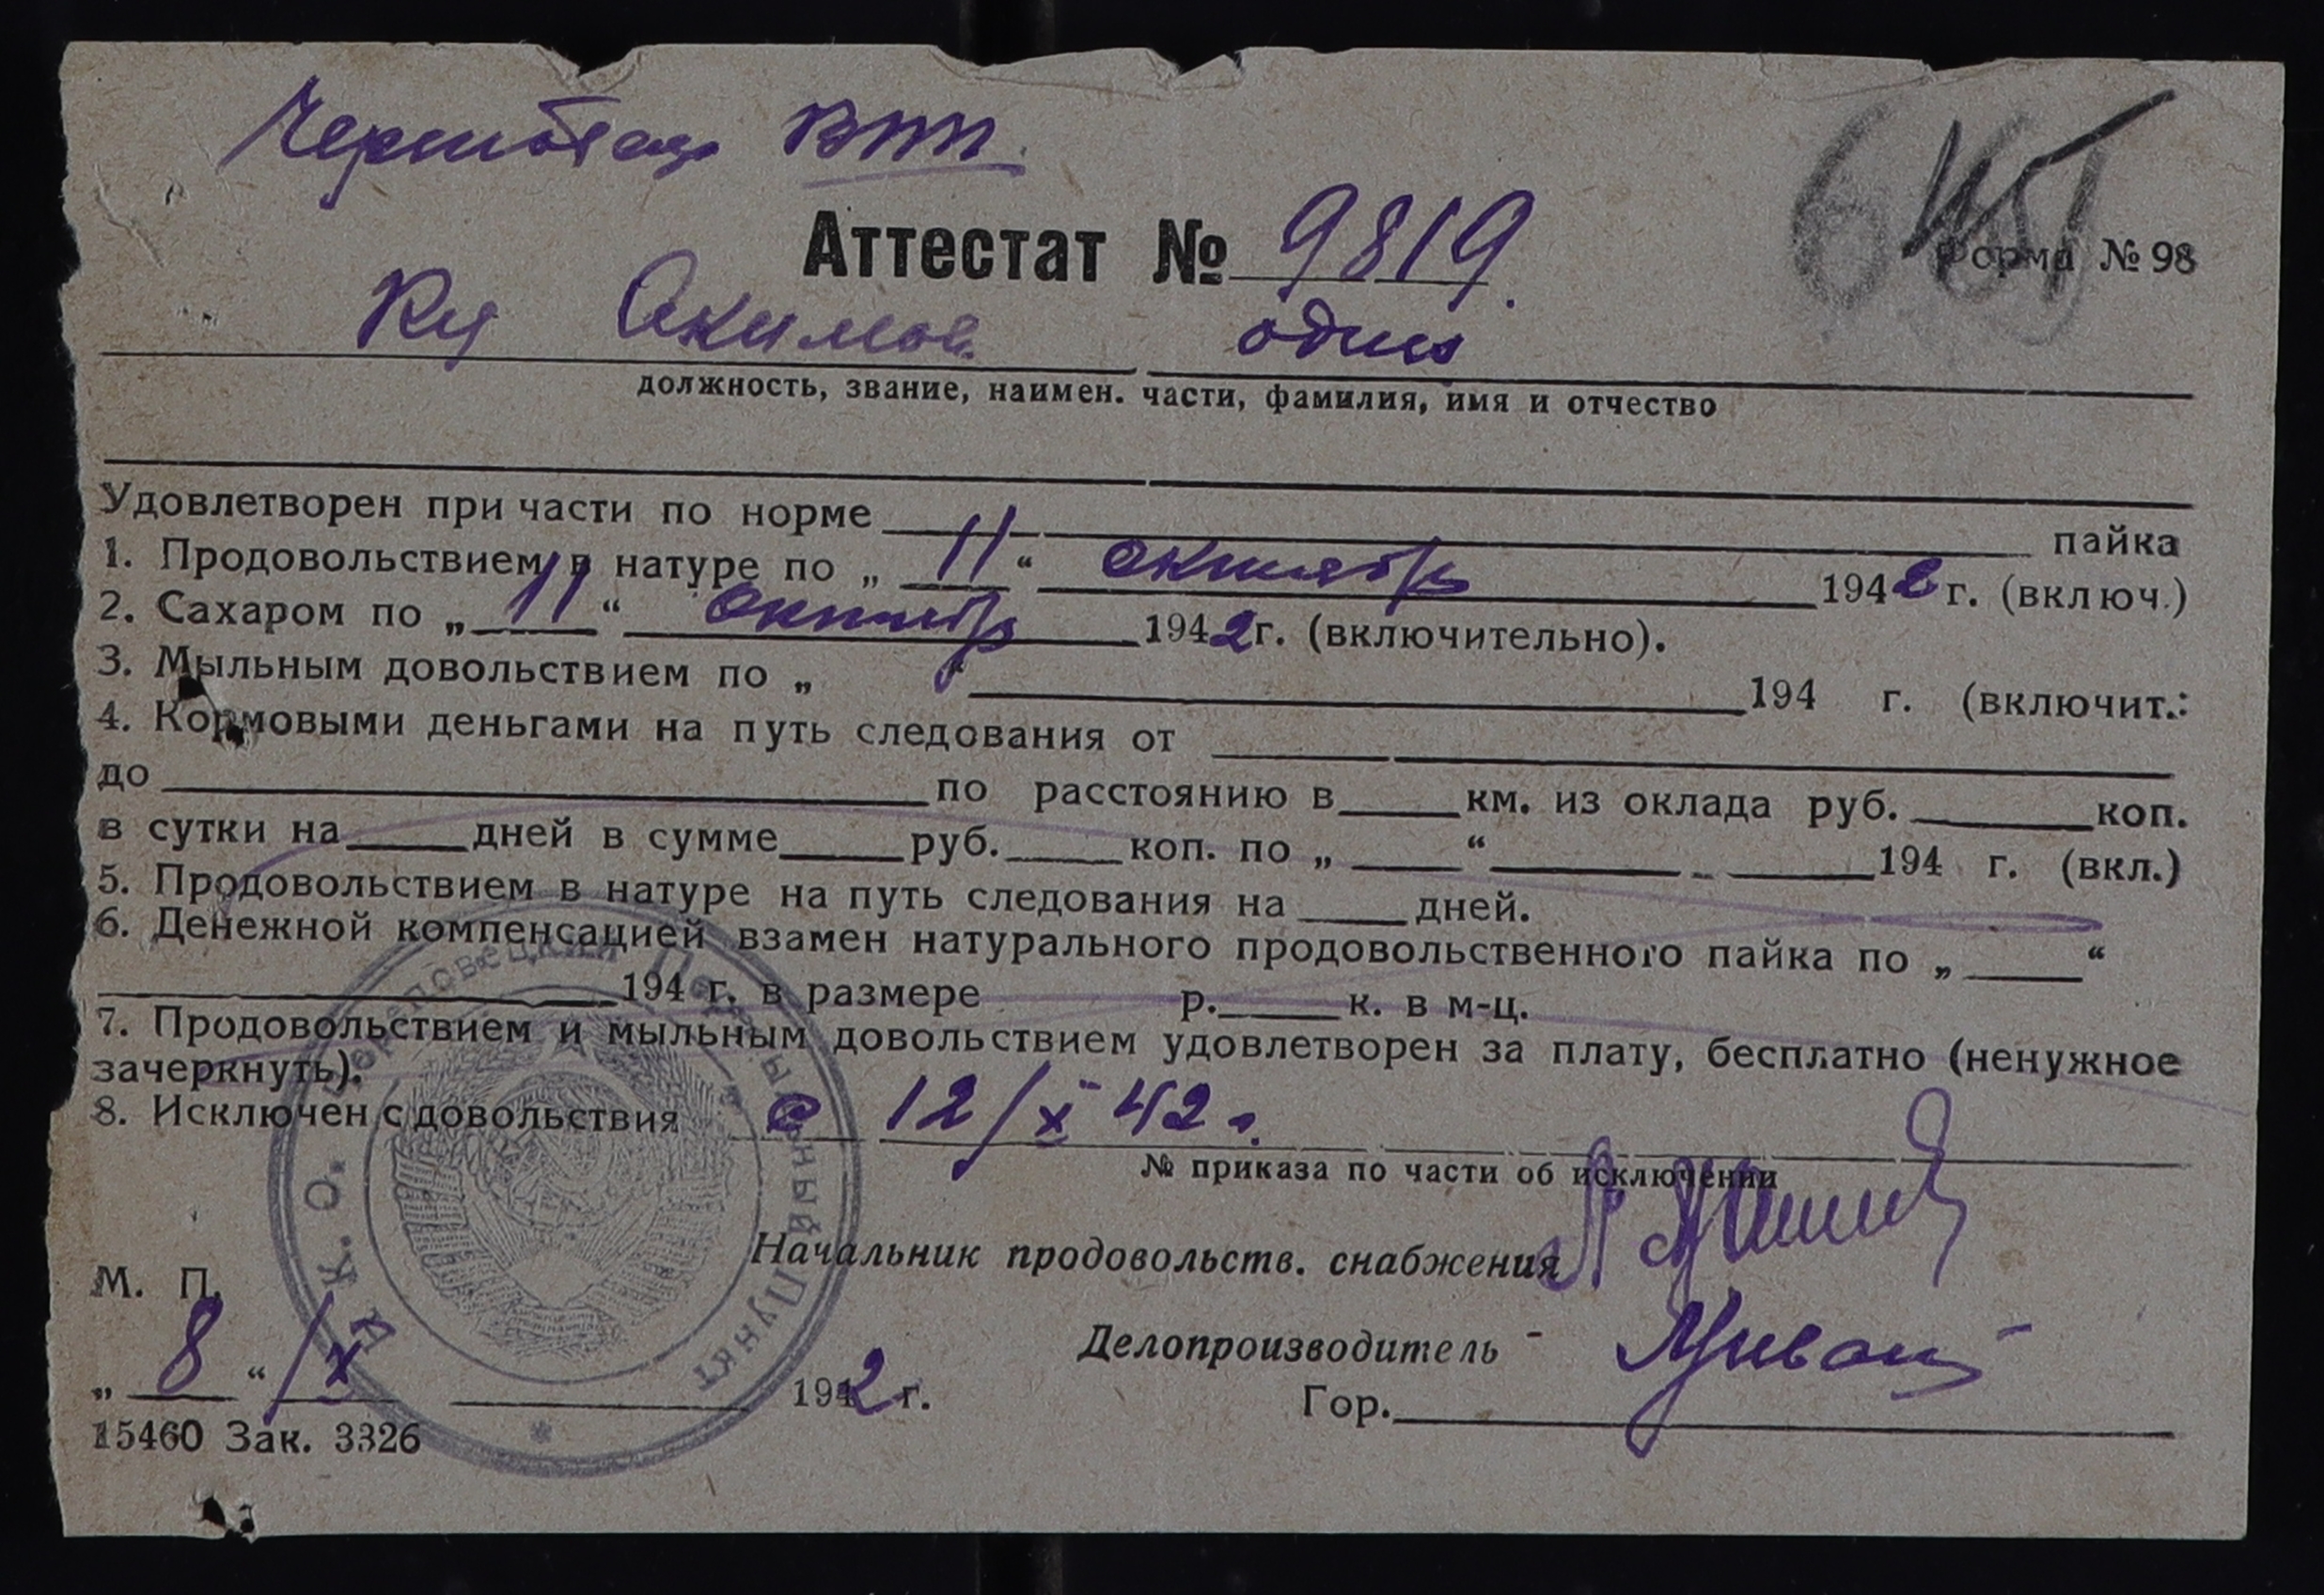 ВПП.
Аттестат № 9819.
Форма № 98
Акимов один
должность, звание, наимен. части, фамилия, имя и отчество
Удовлетворен при части по норме пайка
1. Продовольствием в натуре по „ 11 “ октября 1942 г. (включ.)
2. Сахаром по „ 11 “ октября 1942 г. (включительно).
3. Мыльным довольствием по „ “ 194 г. (включит.:
4. Кормовыми деньгами на путь следования от
до по расстоянию в км. из оклада руб. коп.
в сутки на дней в сумме руб. коп. по „ “ 194 г. (вкл.)
5. Продовольствием в натуре на путь следования на дней.
6. Денежной компенсацией взамен натурального продовольственного пайка по „ “
194 г. в размере р. к. в м-ц.
7. Продовольствием и мыльным довольствием удовлетворен за плату, бесплатно (ненужное
зачеркнуть).
8. Исключен с довольствия с 12/X 42 г.
№ приказа по части об исключении
Начальник продовольств. снабжения
М. П.
Делопроизводитель
„ 8 “ /X 1942 г.
Гор.
15460 Зак. 3326
Н. К. О. Череповецкий Продовольственный Пункт